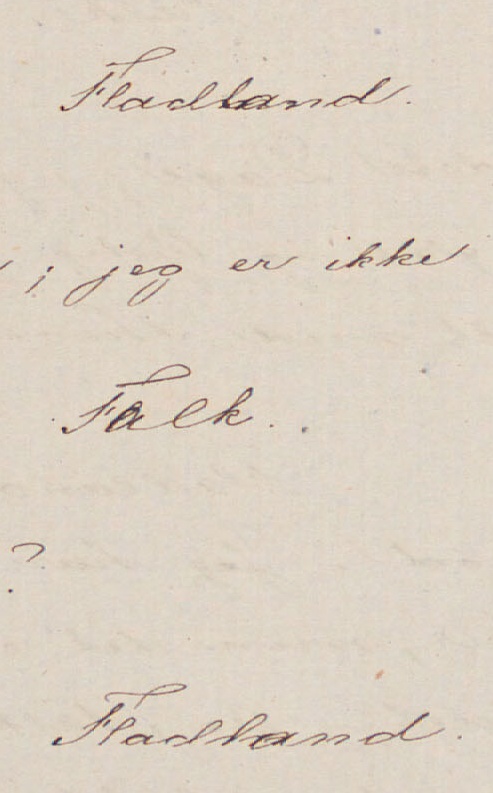 Fladland.
; jeg er ikke
Falk.
?
Fladland.